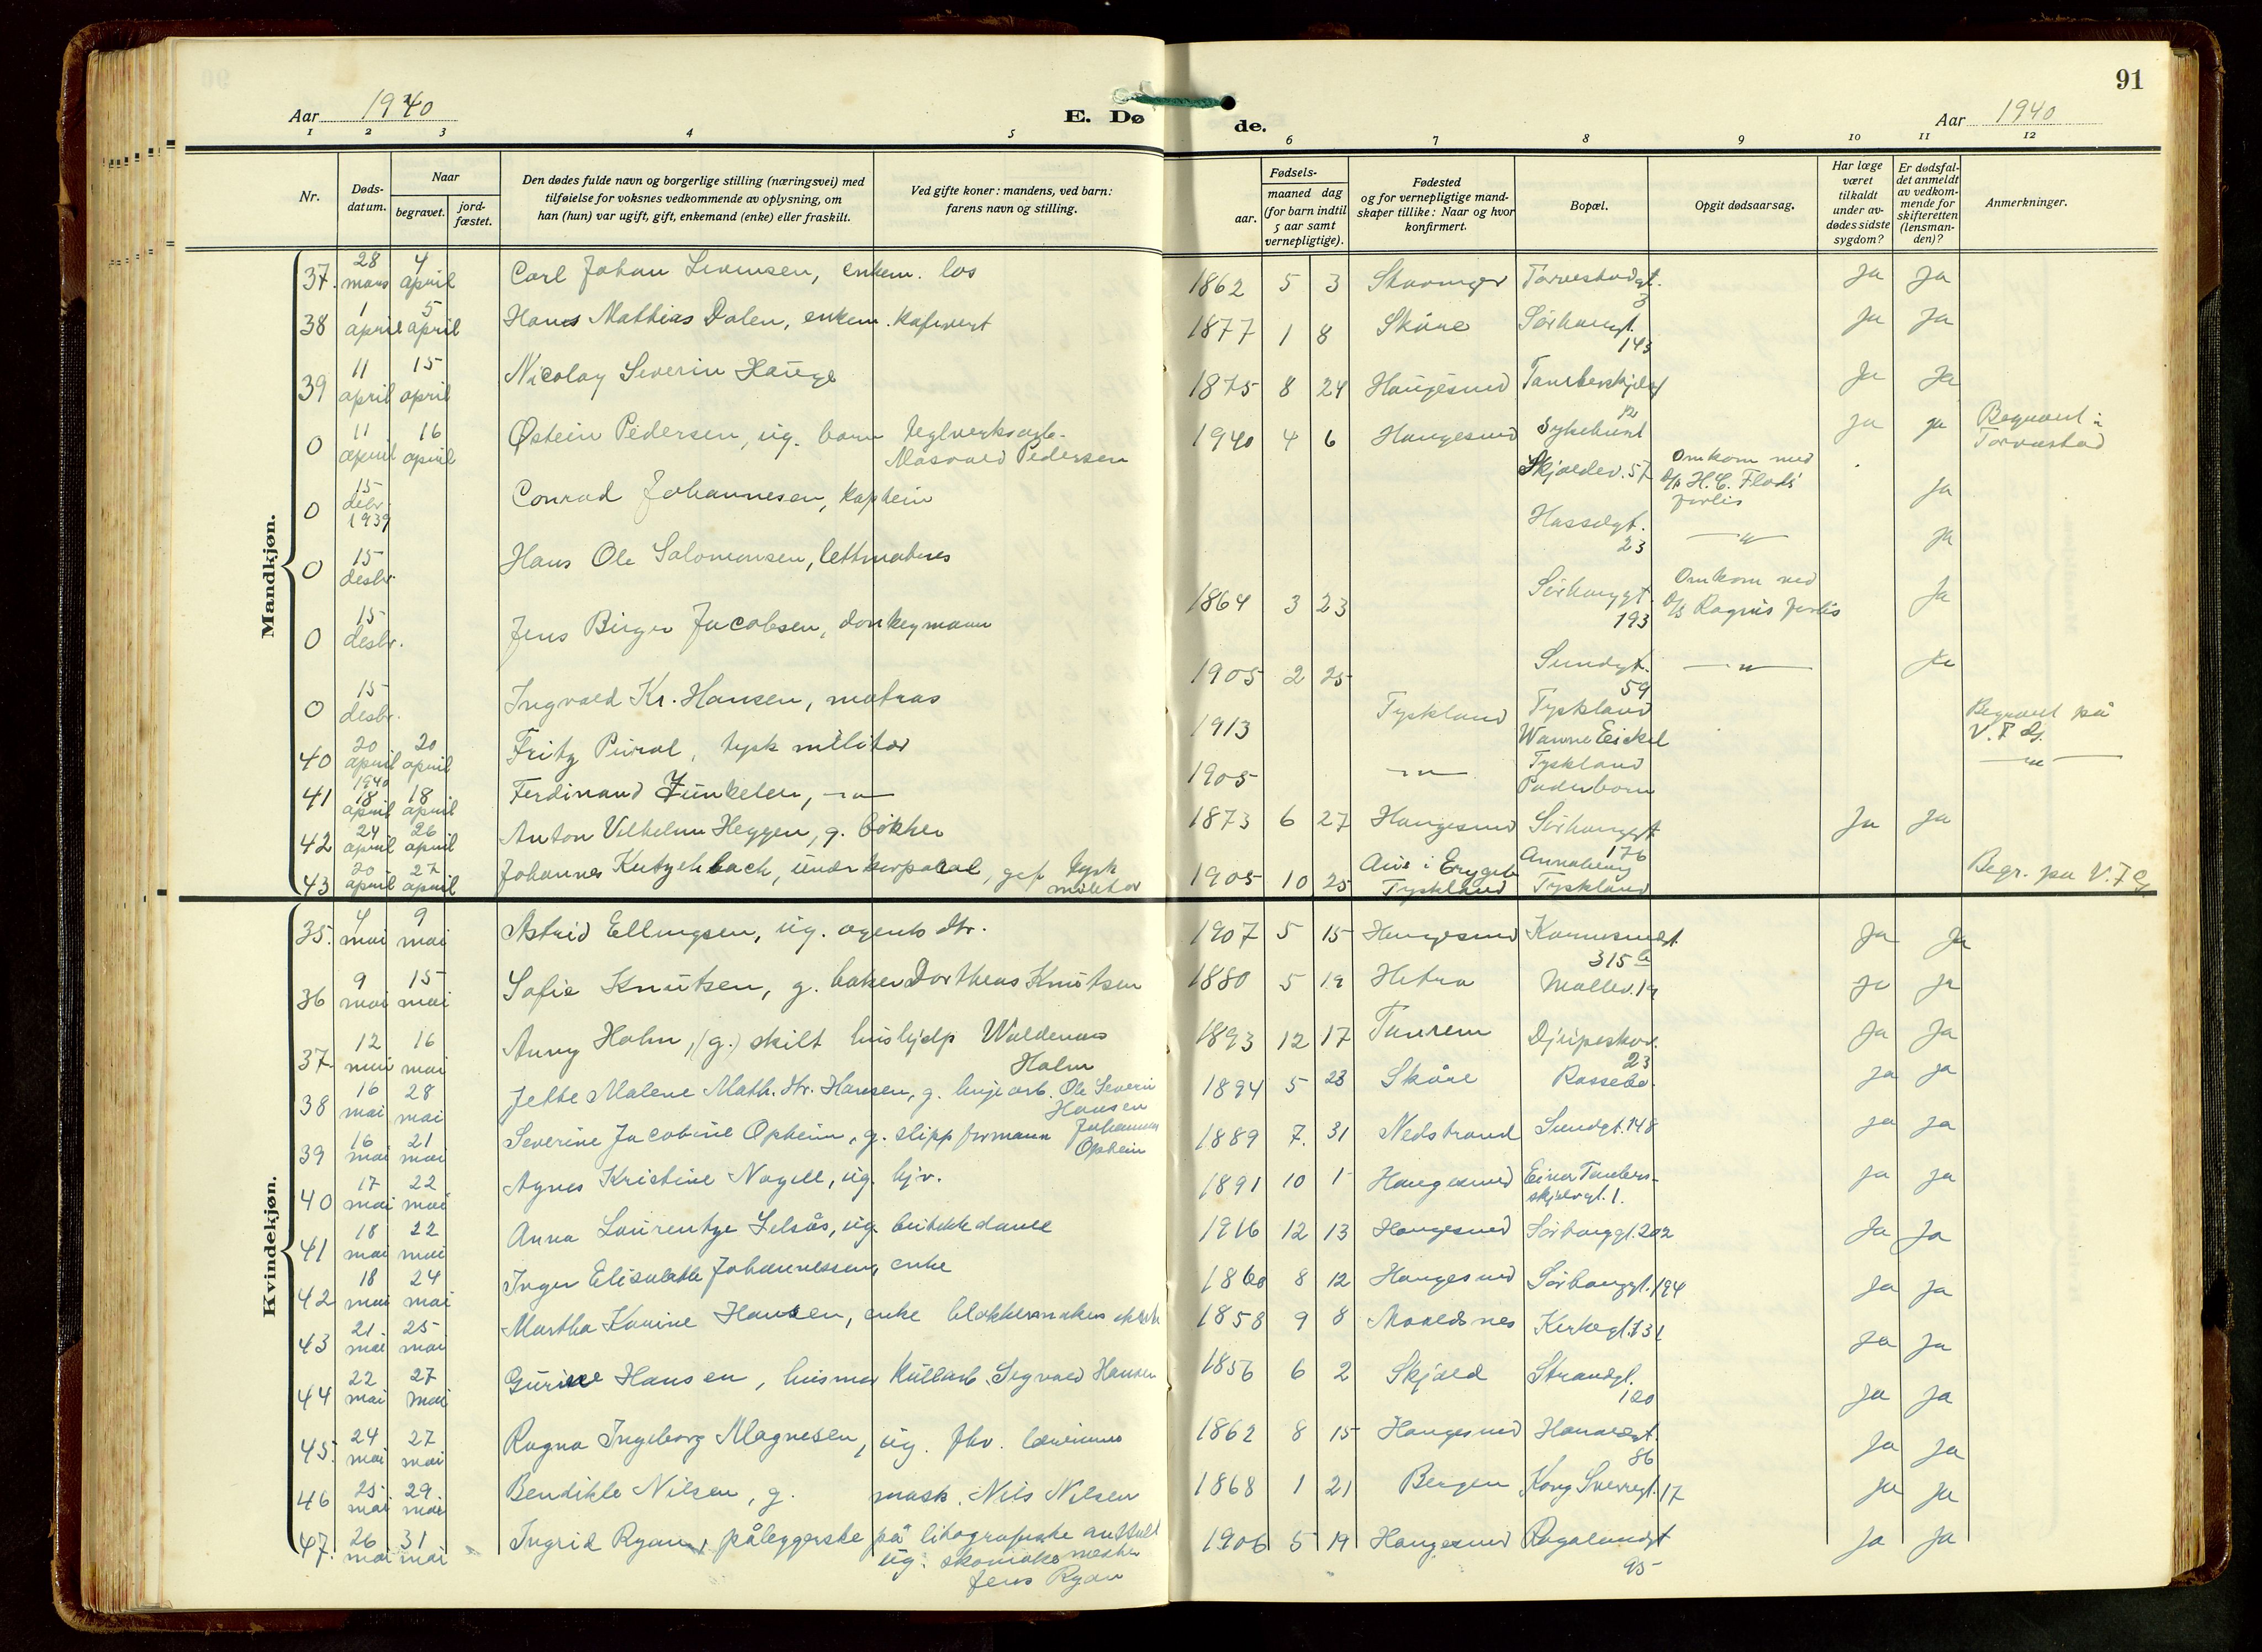 91
Aar 1940
E. Dø de.
Aar 1940
1 2 3 4 5 6 7 8 9 10 11 12
Nr.
Døds-datum.
Naar
begravet.
jord-fæstet.
Den dødes fulde navn og borgerlige stilling (næringsvei) med
tilføielse for voksnes vedkommende av oplysning, om
han (hun) var ugift, gift, enkemand (enke) eller fraskilt.
Ved gifte koner: mandens, ved barn:
farens navn og stilling.
Fødsels-
aar.
maaned dag
(for barn indtil
5 aar samt
vernepligtige).
Fødested
og for vernepligtige mand-
skaper tillike: Naar og hvor
konfirmert.
Bopæl.
Opgit dødsaarsag.
Har læge
været
tilkaldt
under av-
dødes sidste
sygdom?
Er dødsfal-
det anmeldt
av vedkom-
mende for
skifteretten
(lensman-
den)?
Anmerkninger.
Mandkjøn.
37. 28 mars 4 april Carl Johan Sivensen, enkem. los 1862 5 3 Stavanger Torvestadgt. 3 Ja Ja
38 1 april 5 april Hans Mathias Dalen, enkem. kafevert 1877 1 8 Skåre Sørhauggt. 143 Ja Ja
39 11 april 15 april Nicolay Severin Hauge 1875 8 24 Haugesund Ja Ja
0 11 april 16 april Østein Pedersen, ug. barn teglverksarb. Masvald Pedersen 1940 4 6 Haugesund Sykehuset Ja ja Begravet i Torvastad
0 15 debr. 1939 Conrad Johannesen, kaptein Skjoldev. 57 Omkom med D/S H.C. Flods forlis ja
0 15 desbr. Hans Ole Salomonsen, lettmatros Hasselgt. 23 — " — ja
0 15 desbr. Jens Birger Jacobsen, donkeymann 1864 3 23 Sørhauggt. 193 Omkom ved D/S Ragnis forlis Ja
0 15 desbr. Ingvald Kr. Hansen, matros 1905 2 25 Sundgt. 59 — " — Ja
40 20 april 20 april Fritz tysk militær 1913 Tyskland Tyskland Wanne Eickel Begravet på V. F. G.
41 1940 18 april 18 april Ferdinand Jünkelen, — " — 1905 — " — Tyskland Paderborn — " —
42 24 april 26 april Anton Vilhelm Heggen, g. bøkker 1873 6 27 Haugesund Sørhauggt 176 Ja Ja
43 20 april 27 april Johannes Kutzchbach, underkorporal, gift tysk militær 1905 10 25 Aue i Erzgeb Tyskland Annaberg Tyskland Begr. på V. F G
Kvindekjøn.
35. 4 mai 9 mai Astrid Ellingsen, ug. agents dtr. 1907 5 15 Haugesund Karmsundgt. 315 Ja Ja
36 9 mai 15 mai Sofie Knutsen, g. baker Dortheus Knutsen 1880 5 19 Hetra Møllev. 19 Ja Ja
37. 12 mai 16 mai Anny Holm, (g.) skilt hushjelp Waldemar Holm 1893 12 17 Djupeskov. 23 Ja Ja
38 16 mai 28 mai Jette Malene Math. dtr. Hansen, g. linjearb. Ole Severin Hansen 1894 5 23 Skåre Rossebø. Ja Ja
39 16 mai 21 mai Severine Jacobine Opheim, g. slippformann Johannes Opheim 1889 7. 31 Nedstrand Sundgt. 148 Ja Ja
40 17 mai 22 mai Agnes Kristine Nagell, ug. hjv. 1891 10 1 Haugesund Einar Tambers-skjelvgt. 1. Ja Ja
41 18 mai 22 mai Anna Laurentze Selsås, ug. butikkdame 1916 12 13 Haugesund Sørhauggt. 202 Ja Ja
42 18 mai 24 mai Inger Elisabeth Johannessen, enke 1860 8 12 Haugesund Sørhauggt. 194 Ja Ja
43 21. mai 25 mai Martha Karine Hansen, enke blokkemakers enke 1858 9 8 Kirkegt. 131 Ja Ja
44 22 mai 27 mai Gurine Hansen, husmor kullarb. Sigvald Hansen 1856 6 2 Skjold Strandgt. 120 Ja Ja
45. 24 mai 27 mai Ragna Ingeborg Magnesen, ug. fhv. lærerinne 1862 8 15 Haugesund 86 Ja Ja
46 25 mai 29 mai Bendikte Nilsen, g. mask. Nils Nilsen 1868 1 21 Bergen Kong Sverregt. 17 Ja Ja
47. 26 mai 31 mai Ingrid Ryan, påleggerske på litografiske anstalt ug. skomakermester Jens Ryan 1906 5 19 Haugesund Rogalandgt 95 Ja Ja